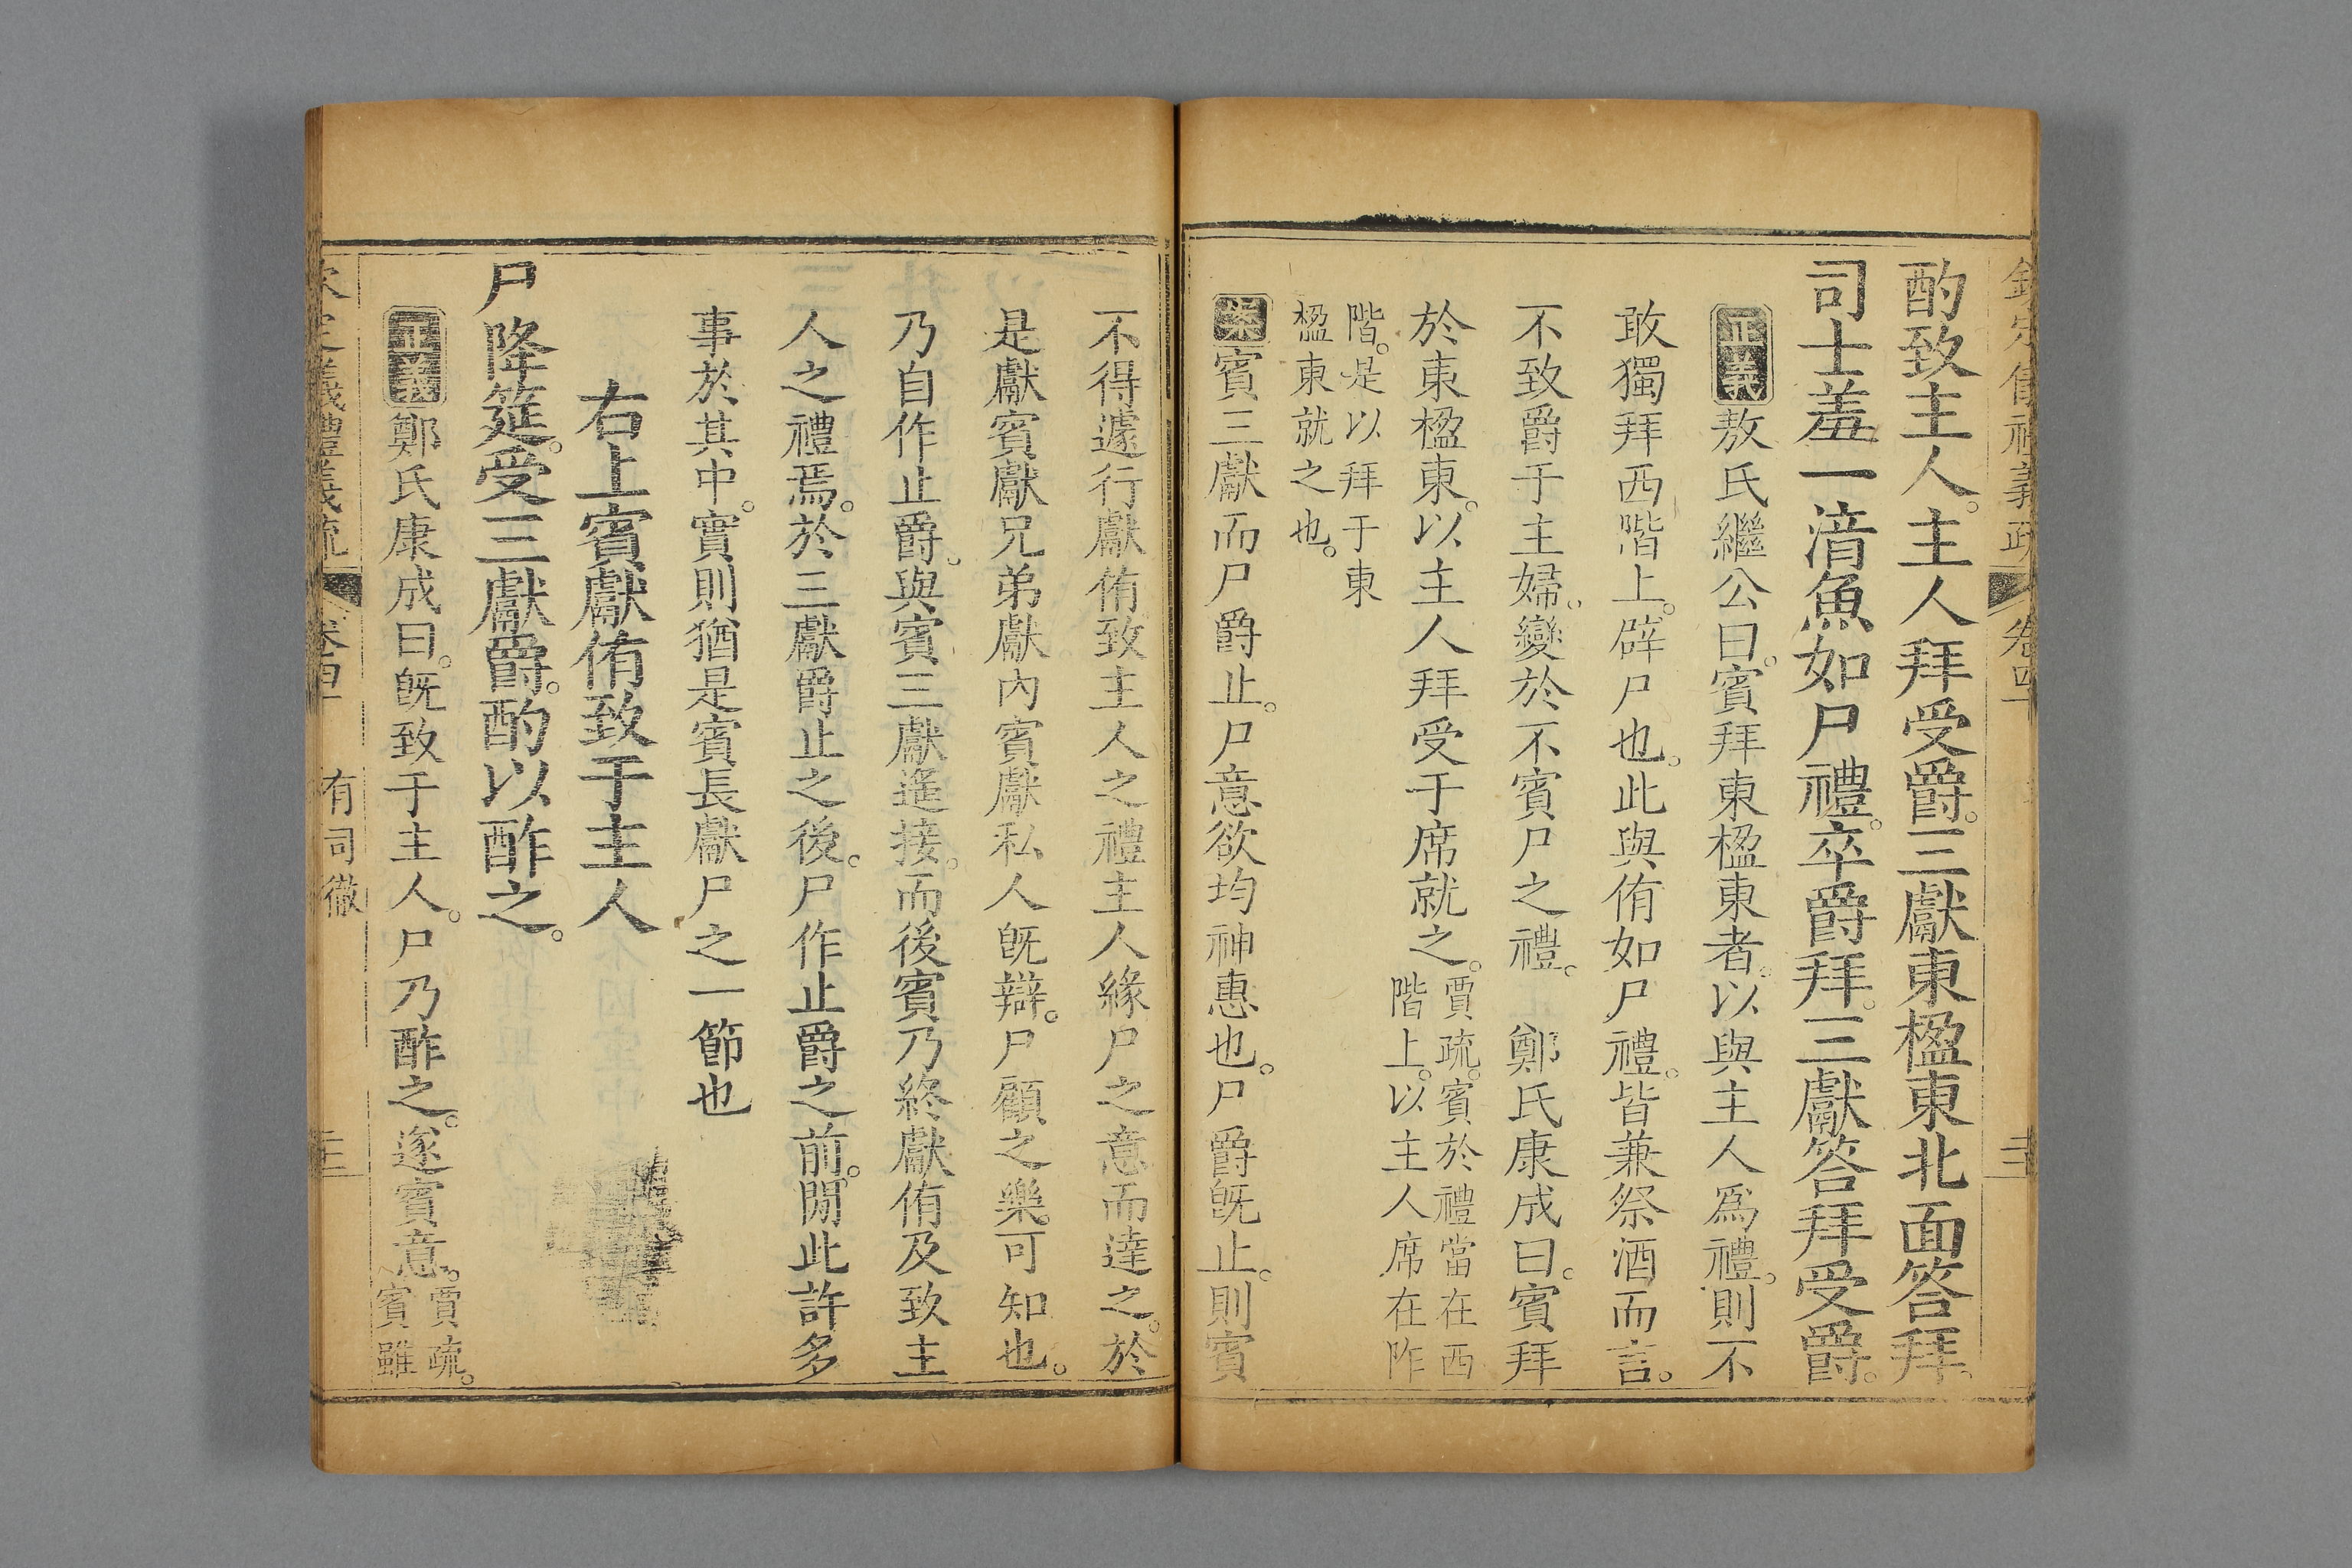 酌致主人。主人拜受爵。三獻東楹東北面答拜。
司士羞一湇魚如尸禮。卒爵拜。三獻答拜受爵。
正義敖氏繼公曰。賓拜東楹東者。以與主人爲禮。則不
敢獨拜西階上。辟尸也。此與侑如尸禮。皆兼祭酒而言。
不致爵于主婦。變於不賓尸之禮。鄭氏康成曰。賓拜
於東楹東。以主人拜受于席就之。賈疏。賓於禮當在西
階上。以主人席在阼
階。是以拜于東
楹東就之也。
案賓三獻而尸爵止。尸意欲均神惠也。尸爵旣止。則賓
不得遽行獻侑致主人之禮主人緣尸之意而達之。於
是獻賓獻兄弟獻內賓獻私人旣辯。尸顧之樂。可知也。
乃自作止爵。與賓三獻遙接。而後賓乃終獻侑及致主
人之禮焉。於三獻爵止之後。尸作止爵之前。閒此許多
事於其中。實則猶是賓長獻尸之一節也
右上賓獻侑致于主人
尸降筵。受三獻爵。酌以酢之。
正義鄭氏康成曰。旣致于主人。尸乃酢之。遂賓意。賈疏。
賓雖
欽定儀禮義疏
卷四十
有司徹